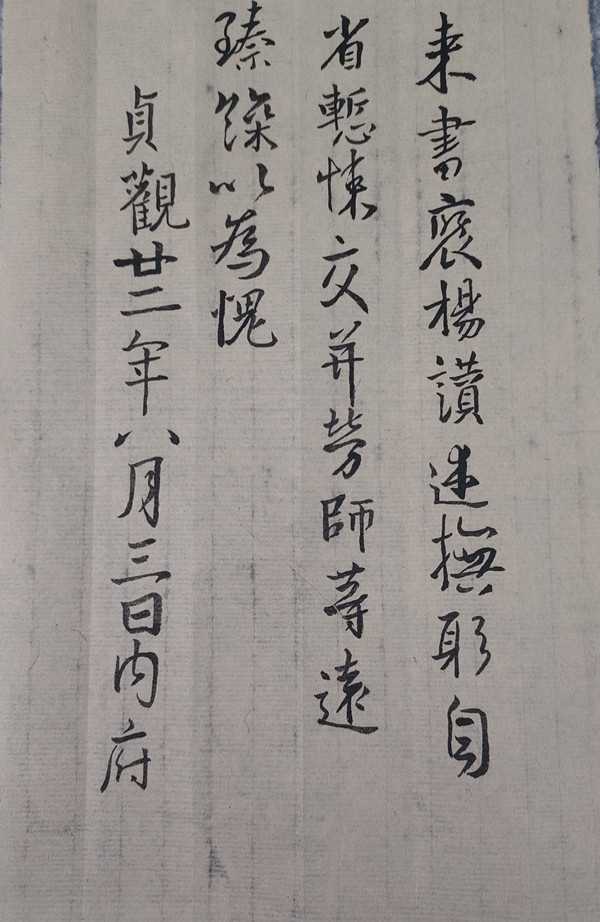 来書褒楊讃述撫躬自
省慙悚交并勞師等遠
臻深以為愧
貞觀廿二年八月三日内府